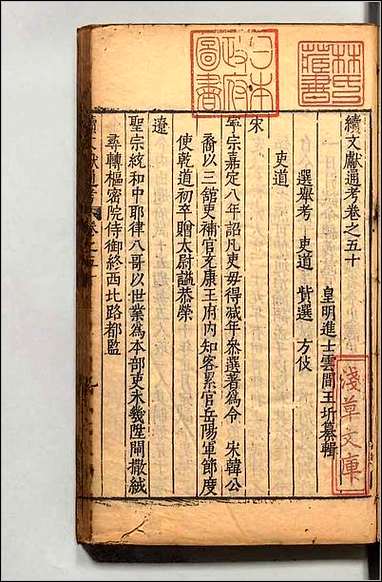 續文獻通考卷之五十
皇明進士雲間王圻纂輯
選舉考 吏道 貲選 方伎
吏道
宋
寧宗嘉定八年詔凡吏毋得减年叅選著為令 宋韓公
裔以三舘吏補官充康王府内知客累官岳陽軍節度
使乾道初卒贈太尉謚恭榮
遼
聖宗統和中耶律八哥以世業為本部吏未幾陞閘撒狘
尋轉樞密院侍御終西北路都監
續文獻通考 卷之五十
林氏藏書
日本政府圖書
淺草文庫